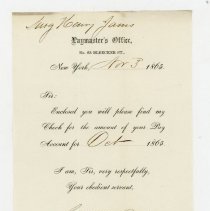 Surg Henry Janes
Paymaster's Office,
No. 65 BLEECKER ST.,
New York, Nov 3 1864
Sir:
Enclosed you will please find my
Check for the amount of your Pay
Account for Oct 1864
I am, Sir, very respectfully,
Your obedient servant,